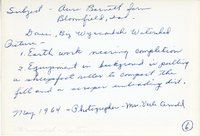 Subject - Ann Barnett farm
Bloomfield, Ind.
Dam, Big Wyacondah Watershed
Picture -
1. Earth work nearing completion
2. Equipment in background is pulling
a sheepsfoot roller to compact the
fill and a scraper unloading dirt.
May 1964 - Photographer - Mr. Dick Arndel
6